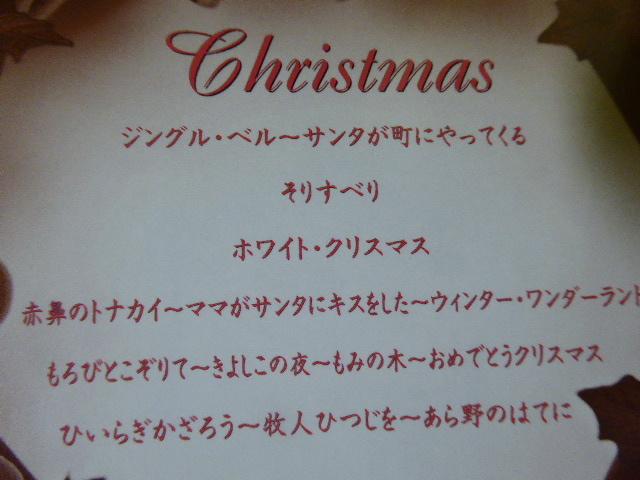 Christmas
ジングル・ベル〜サンタが町にやってくる
そりすべり
ホワイト・クリスマス
赤鼻のトナカイ〜ママがサンタにキスをした〜ウィンター・ワンダーランド
もろびとこぞりて〜きよしこの夜〜もみの木〜おめでとうクリスマス
ひいらぎかざろう〜牧人ひつじを〜あら野のはてに